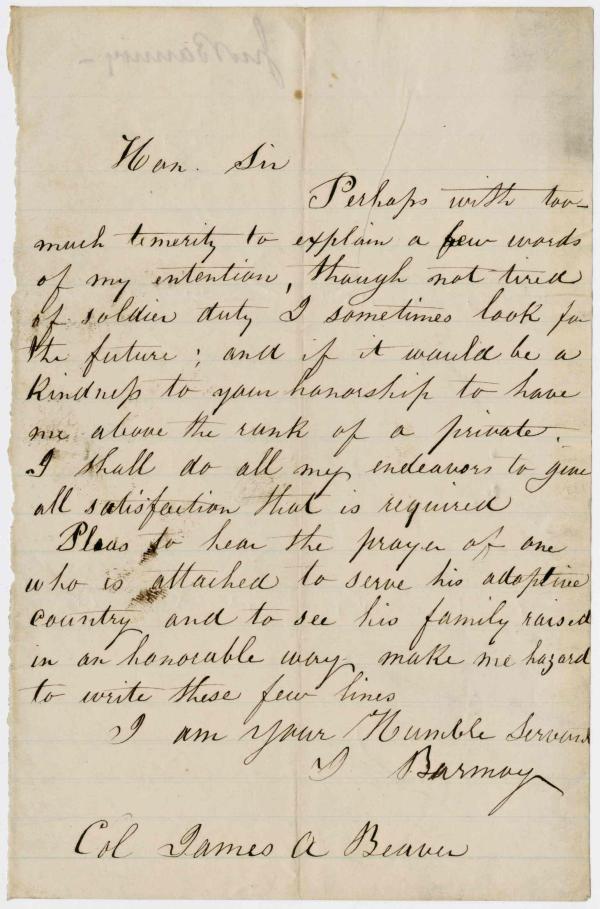 Hon. Sir
Perhaps with too
much temerity to explain a few words
of my intention, though not tired
of soldier duty I sometimes look for
the future; and if it would be a
kindness to your honorship to have
me above the rank of a private.
I shall do all my endeavors to give
all satisfaction that is required
Pleas to hear the prayer of one
who is attached to serve his adoptive
country and to see his family raised
in an honorable way make me hazard
to write these few lines
I am your Humble Servant
J Barmoy
Col James A Beaver